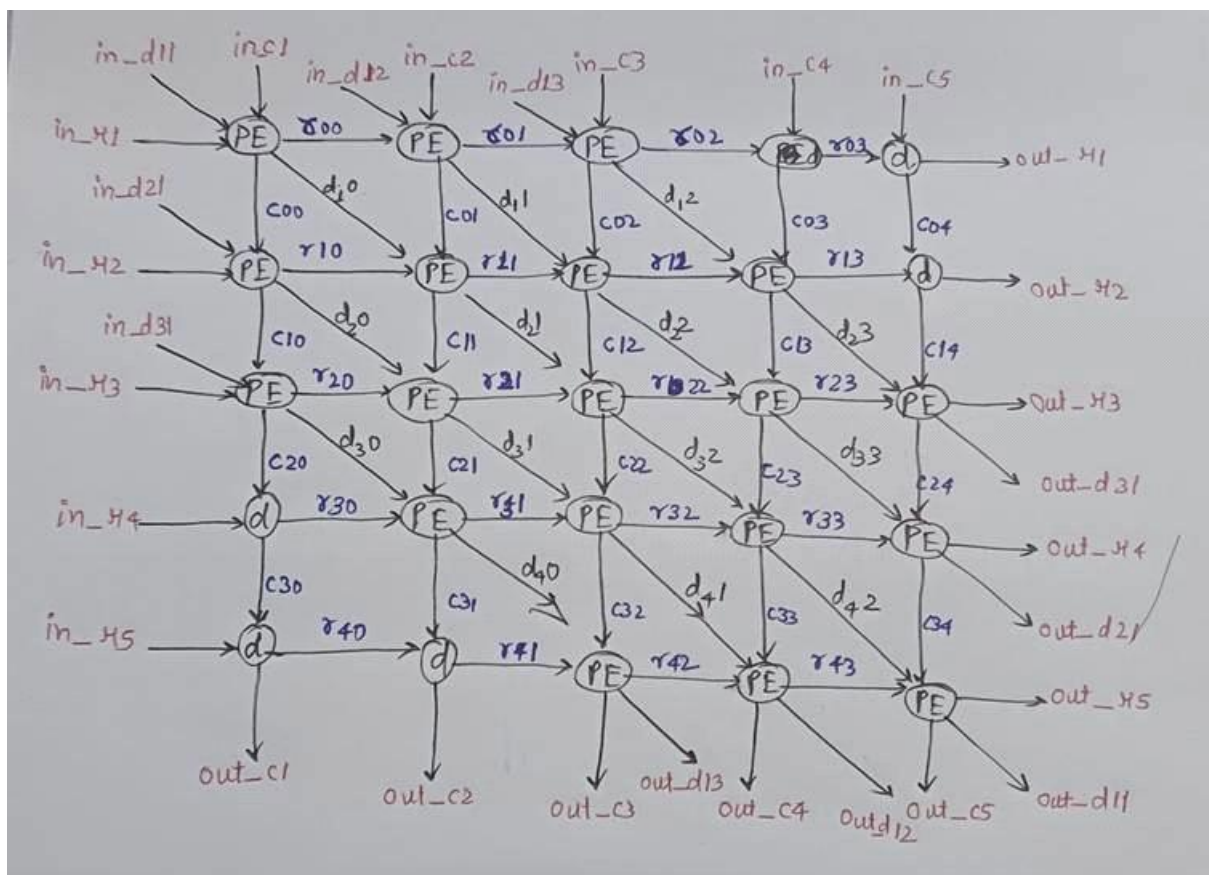 in_d11 in_c1 in_d12 in_c2 in_d13 in_c3 in_c4 in_c5
in_r1 PE r00 PE r01 PE r02 d r03 d out_r1
in_d21 c00 d10 c01 d11 c02 d12 c03 c04
in_r2 PE r10 PE r11 PE r12 PE r13 d out_r2
in_d31 c10 d20 c11 d21 c12 d22 c13 d23 c14
in_r3 PE r20 PE r21 PE r22 PE r23 PE out_r3
c20 d30 c21 d31 c22 d32 c23 d33 c24 out_d31
in_r4 d r30 PE PE r32 PE r33 PE out_r4
c30 c31 d40 c32 d41 c33 d42 c34 out_d21
in_r5 d r40 d r41 PE r42 PE r43 PE out_r5
out_c1 out_c2 out_c3 out_d13 out_c4 out_d12 out_c5 out_d11